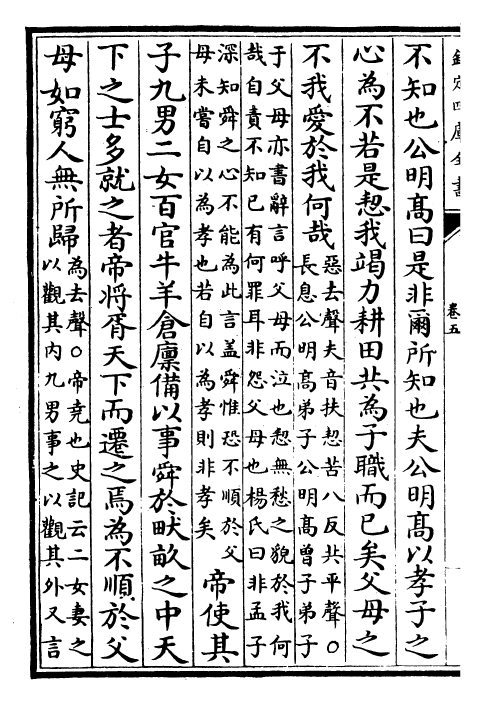 欽定四庫全書
卷五
不知也公明髙曰是非爾所知也夫公明髙以孝子之
心為不若是恝我竭力耕田共為子職而已矣父母之
不我愛於我何哉
惡去聲夫音扶恝苦八反共平聲〇
長息公明髙弟子公明髙曾子弟子
于父母亦書辭言呼父母而泣也恝無愁之貌於我何
哉自責不知已有何罪耳非怨父母也楊氏曰非孟子
深知舜之心不能為此言盖舜惟恐不順於父
母未嘗自以為孝也若自以為孝則非孝矣
帝使其
子九男二女百官牛羊倉廩備以事舜於畎畝之中天
下之士多就之者帝將胥天下而遷之焉為不順於父
母如窮人無所歸
為去聲〇帝堯也史記云二女妻之
以觀其内九男事之以觀其外又言